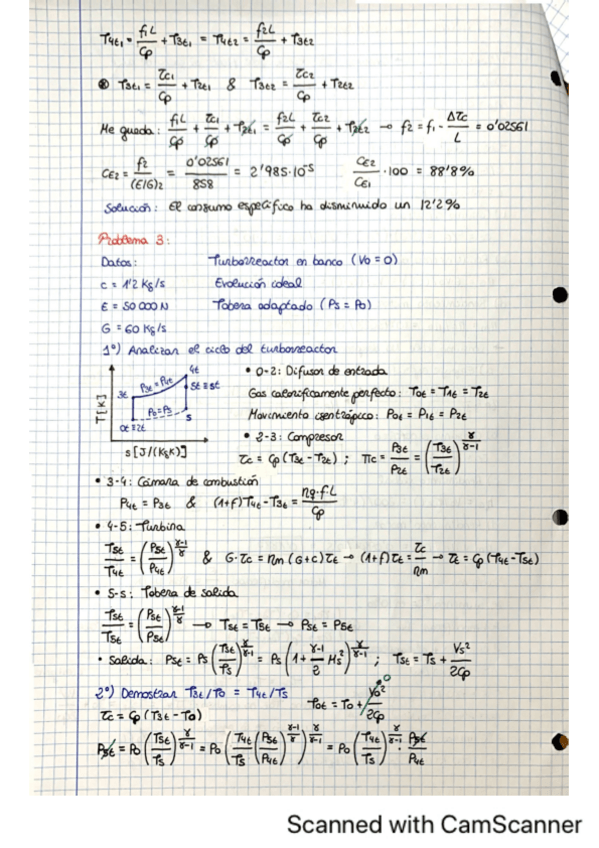 T4t1 = f1L/Cp + T3t1 = T4t2 = f2L/Cp + T3t2
⊗ T3t1 = τc1/Cp + T2t1 & T3t2 = τc2/Cp + T2t2
Me queda: f1L/Cp + τc1/Cp + T2t1 = f2L/Cp + τc2/Cp + T2t2 → f2 = f1 - Δτc/L = 0'02561
CE2 = f2/(E/G)2 = 0'02561/858 = 2'985·10^-5 CE2/CE1 · 100 = 88'8%
Solución: El consumo específico ha disminuido un 12'2%
Problema 3:
Datos: Turborreactor en banco (V0 = 0)
c = 1'2 Kg/s Evolución ideal
E = 50 000 N Tobera adaptado (Ps = P0)
G = 60 Kg/s
1º) Analizar el ciclo del turborreactor
T[K]
3t P3t = P4t 4t
5t ≡ st
P0 = Ps s
0t ≡ 2t
s [J/(KgK)]
• 0-2: Difusor de entrada
Gas caloríficamente perfecto: T0t = T1t = T2t
Movimiento isentrópico: P0t = P1t = P2t
• 2-3: Compresor
τc = Cp (T3t - T2t) ; πc = P3t/P2t = (T3t/T2t)^γ/γ-1
• 3-4: Cámara de combustión
P4t = P3t & (1+f)T4t - T3t = ηq·f·L/Cp
• 4-5: Turbina
T5t/T4t = (P5t/P4t)^γ-1/γ & G·τc = ηm (G+c)τt → (1+f)τt = τc/ηm → τt = Cp (T4t - T5t)
• 5-s: Tobera de salida
Tst/T5t = (Pst/P5t)^γ-1/γ → Tst = T5t → Pst = P5t
• Salida: Pst = Ps (Tst/Ts)^γ/γ-1 = Ps (1 + γ-1/2 Ms²)^γ/γ-1 ; Tst = Ts + Vs²/2Cp
2º) Demostrar T3t/T0 = T4t/Ts T0t = T0 + V0²/2Cp 0
τc = Cp (T3t - T0)
P5t = P0 (T5t/Ts)^γ/γ-1 = P0 (T4t/Ts (P5t/P4t)^γ-1/γ)^γ/γ-1 = P0 (T4t/Ts)^γ/γ-1 · P5t/P4t
Scanned with CamScanner